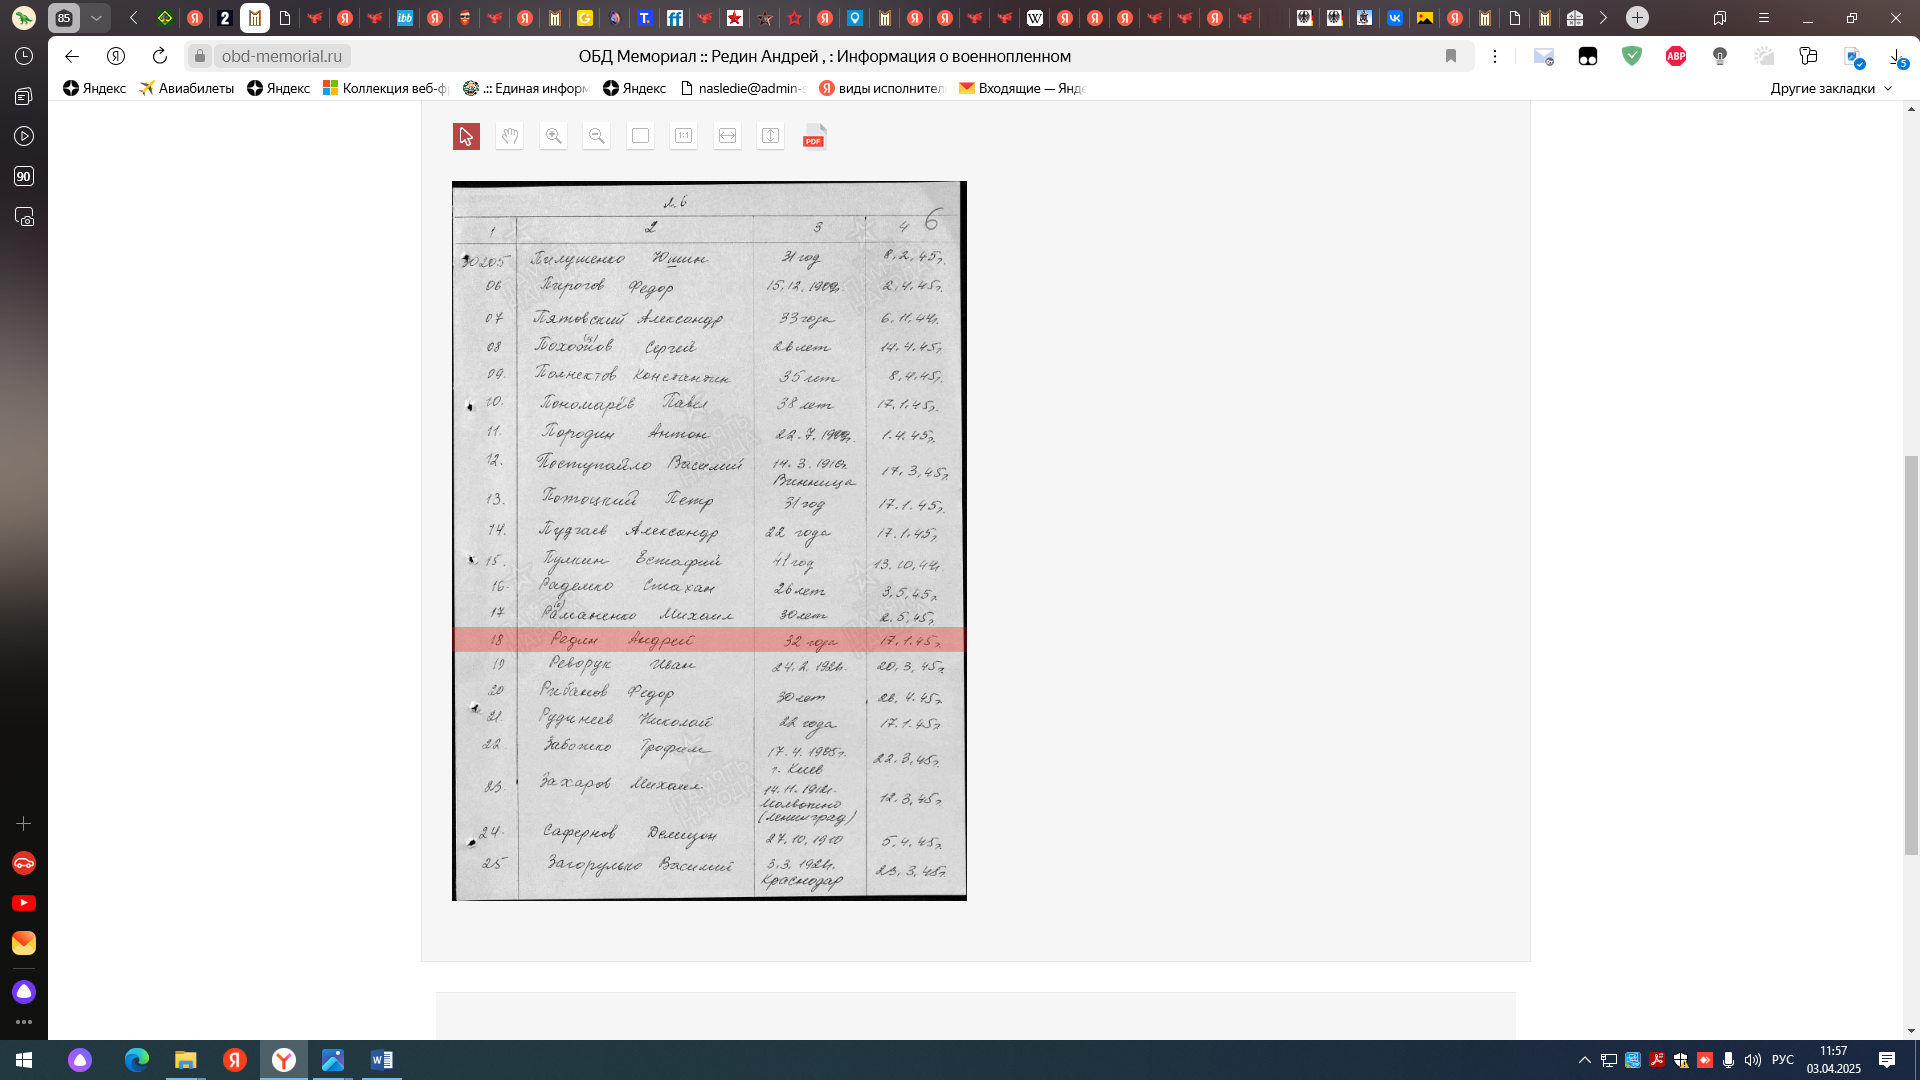 85
obd-memorial.ru
ОБД Мемориал :: Редин Андрей , : Информация о военнопленном
Яндекс
Авиабилеты
Яндекс
Коллекция веб-ф
.:: Единая информ
Яндекс
nasledie@admin-
виды исполнител
Входящие — Янде
Другие закладки
90
1:1
PDF
л. 6
6
1 2 3 4
30205 Пилушенко Юшин 31 год 8.2.45г.
06 Пирогов Федор 15.12.1909г. 2.4.45г.
07 Пятовский Александр 33 года 6.11.44г.
08 Сергей 26 лет 14.4.45г.
09. Полнектов Константин 35 лет 8.4.45г.
10. Пономарёв Павел 38 лет 17.1.45г.
11. Породин Антон 22.7.1909г. 1.4.45г.
12. Поступайло Василий 14.3.1910г. 17.3.45г.
Винница
13. Потоцкий Петр 31 год 17.1.45г.
14. Пудгаев Александр 22 года 17.1.45г.
15. Пулкин Естафий 41 год 13.10.44г.
16. Радемко Стахан 26 лет 3.5.45г.
17 Раманенко Михаил 30 лет 2.5.45г.
18 Редин Андрей 32 года 17.1.45г.
19 Реворук Иван 24.2.192 20.3.45г.
20 Рибанов Федор 30 лет 26.4.45г.
21. Рудинеев Николай 22 года 17.1.45г.
22. Забожко Трофим 17.4.1905г. 22.3.45г.
г. Киев
23. Захаров Михаил 14.11.1912г. 12.3.45г.
(Ленинград)
24. Сафернов 27.10.1910 5.4.45г.
25 Загорулько Василий 3.3.192 г. 23.3.45г.
Краснодар
РУС
11:57
03.04.2025
5